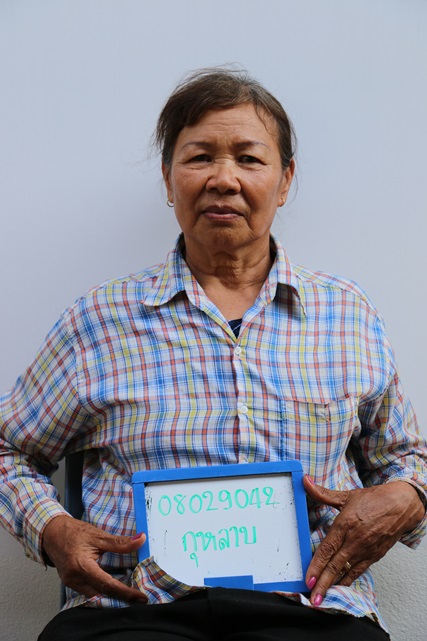 08029042
กุหลาบ